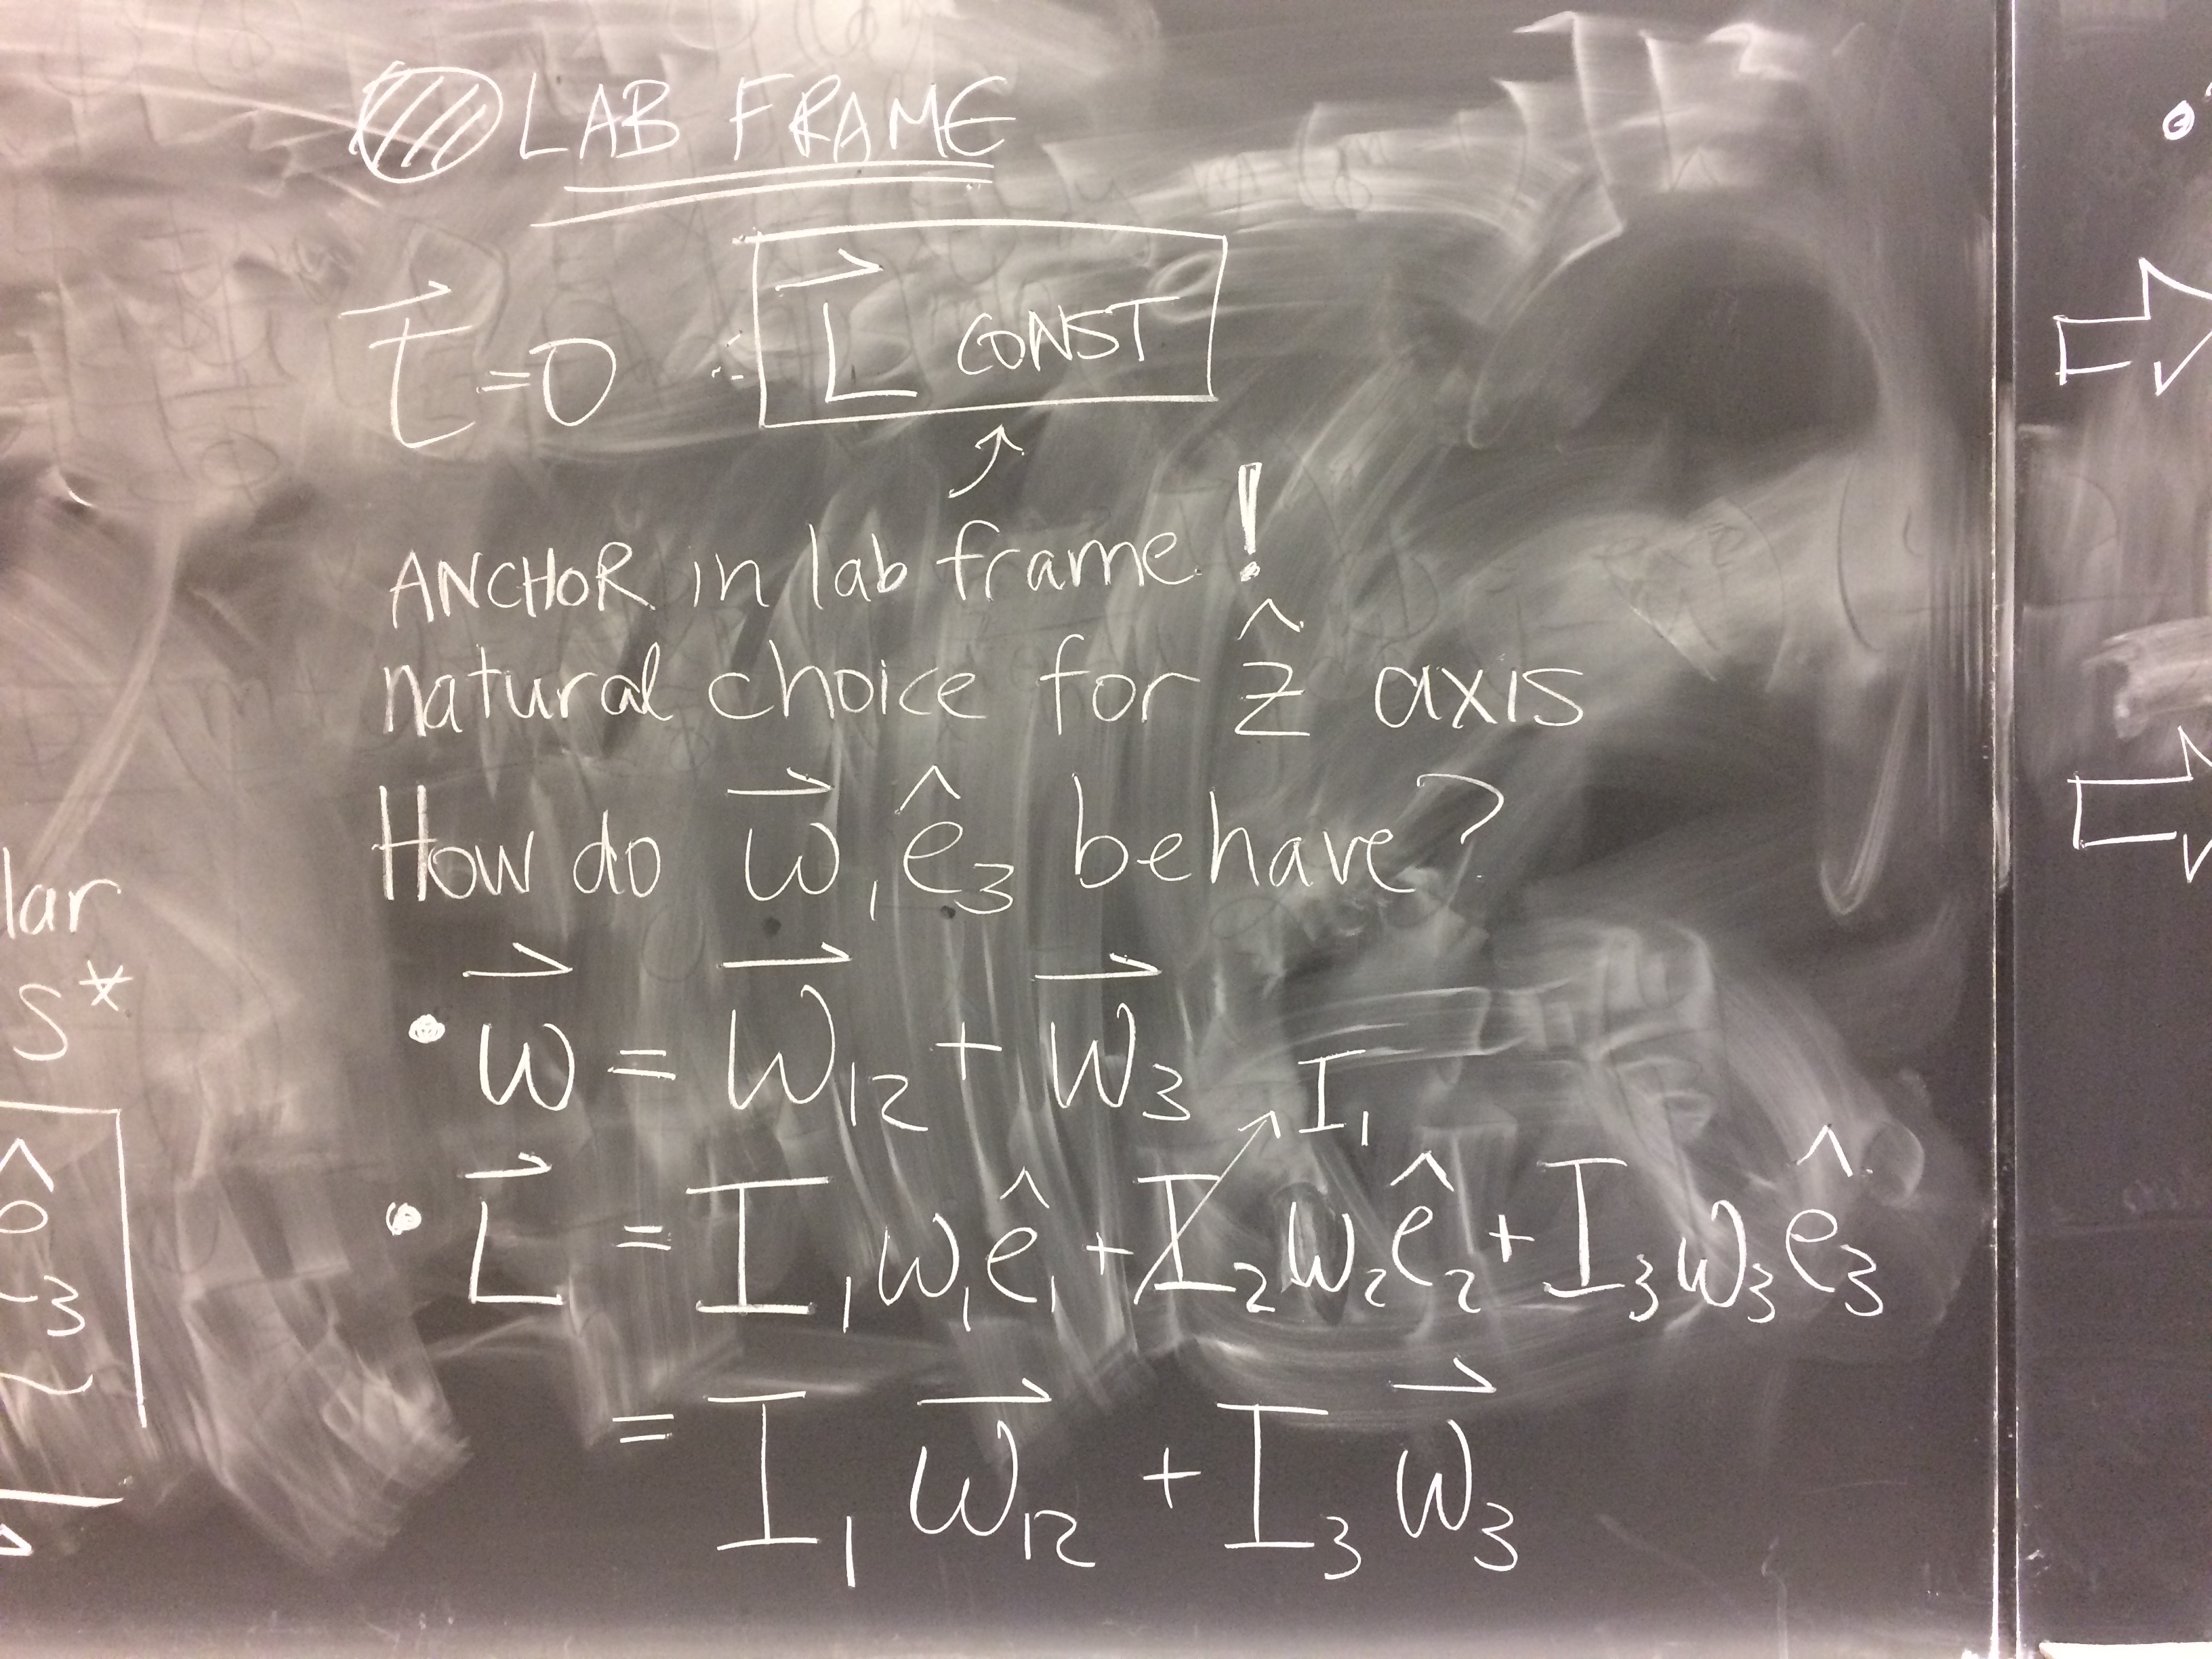 LAB FRAME
τ⃗ = 0 ∴ L⃗ CONST
ANCHOR in lab frame!
natural choice for ẑ axis
How do ω⃗, ê₃ behave?
• ω⃗ = ω⃗₁₂ + ω⃗₃
I₁
• L⃗ = I₁ω₁ê₁ + I₂ω₂ê₂ + I₃ω₃ê₃
= I₁ω⃗₁₂ + I₃ω⃗₃
lar
S*